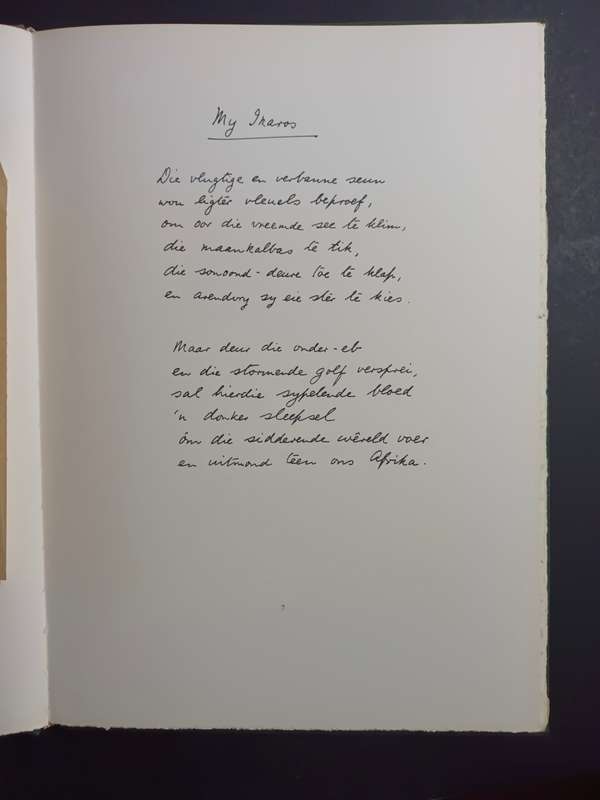 My Ikaros
Die vlugtige en verbanne seun
wou ligter vleuels beproef,
om oor die vreemde see te klim,
die maankalbas te tik,
die sonoond-deure toe te klap,
en arendvry sy eie ster te kies.
Maar deur die onder-eb
en die stormende golf versprei,
sal hierdie sypelende bloed
'n donker sleepsel
óm die sidderende wêreld voer
en uitmond teen ons Afrika.
7